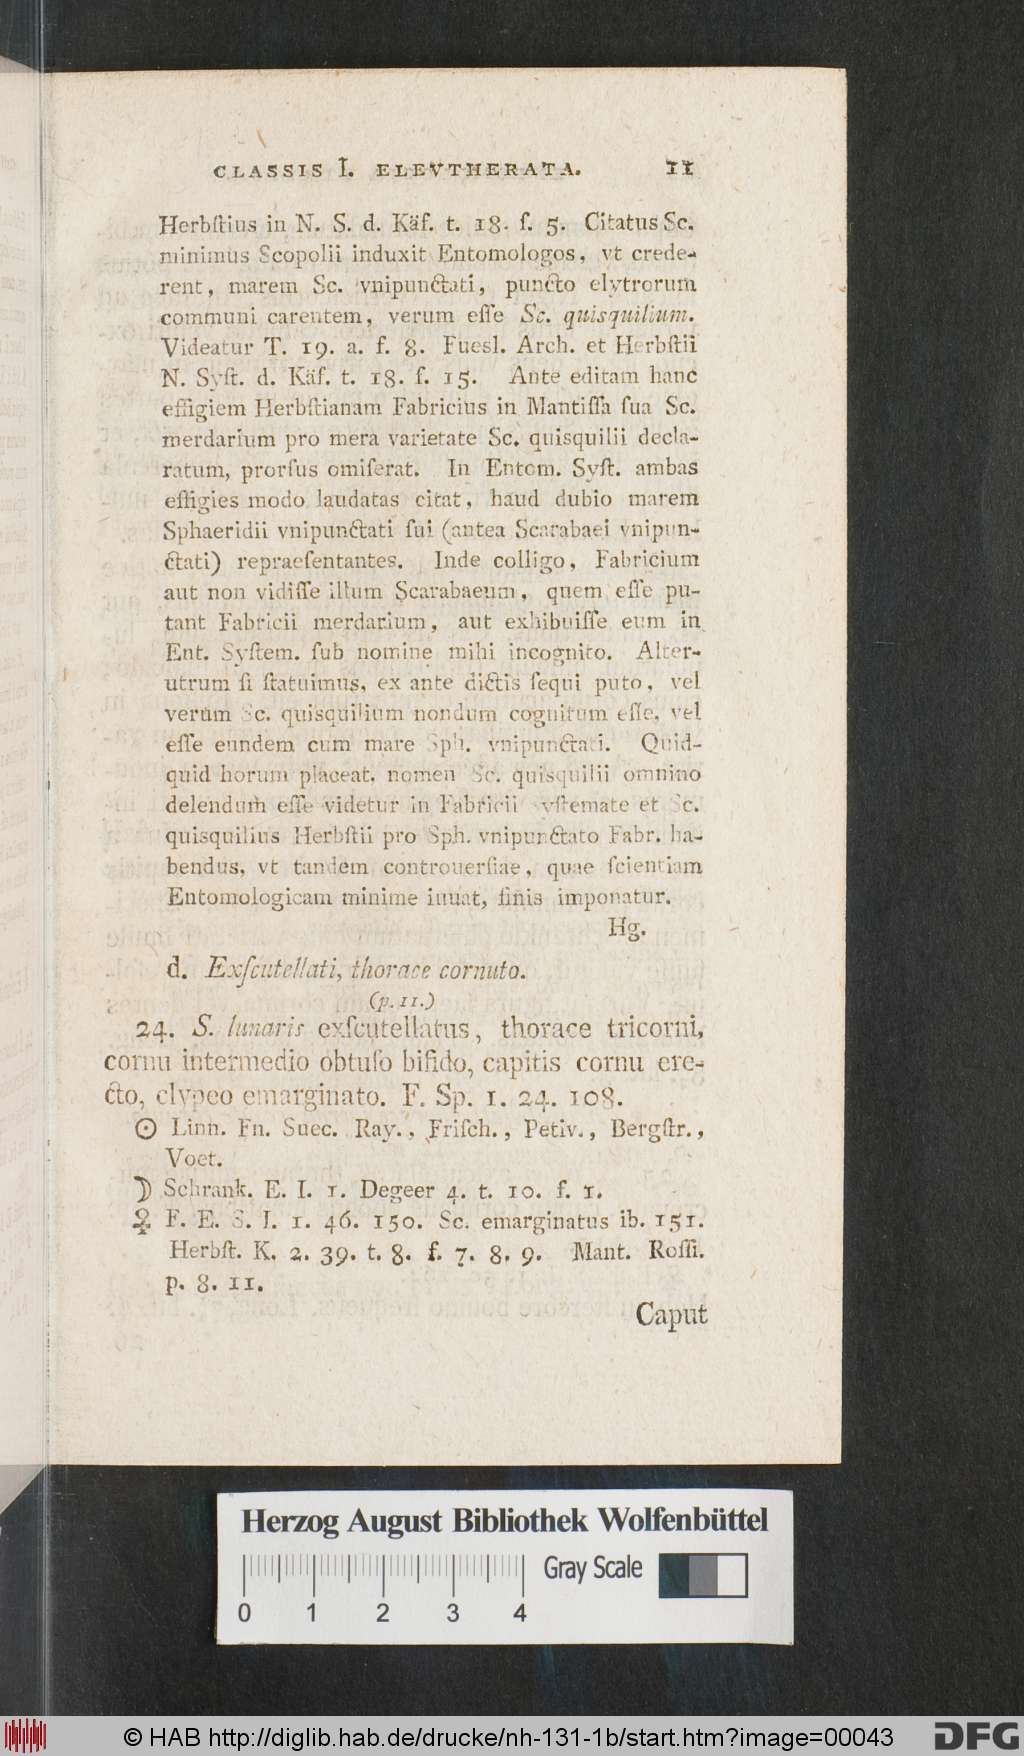 CLASSIS I. ELEVTHERATA. 11
Herbſtius in N. S. d. Käf. t. 18. f. 5. Citatus Sc.
minimus Scopolii induxit Entomologos, vt crede-
rent, marem Sc. vnipunctati, puncto elytrorum
communi carentem, verum eſſe Sc. quisquilium.
Videatur T. 19. a. f. 8. Fuesl. Arch. et Herbſtii
N. Syſt. d. Käf. t. 18. f. 15. Ante editam hanc
effigiem Herbſtianam Fabricius in Mantiſſa ſua Sc.
merdarium pro mera varietate Sc. quisquilii decla-
ratum, prorſus omiſerat. In Entom. Syſt. ambas
effigies modo laudatas citat, haud dubio marem
Sphaeridii vnipunctati ſui (antea Scarabaei vnipun-
ctati) repraeſentantes. Inde colligo, Fabricium
aut non vidiſſe illum Scarabaeum, quem eſſe pu-
tant Fabricii merdarium, aut exhibuiſſe eum in
Ent. Syſtem. ſub nomine mihi incognito. Alter-
utrum ſi ſtatuimus, ex ante dictis ſequi puto, vel
verum Sc. quisquilium nondum cognitum eſſe, vel
eſſe eundem cum mare Sph. vnipunctati. Quid-
quid horum placeat, nomen Sc. quisquilii omnino
delendum eſſe videtur in Fabricii ſyſtemate et Sc.
quisquilius Herbſtii pro Sph. vnipunctato Fabr. ha-
bendus, vt tandem controuerſiae, quae ſcientiam
Entomologicam minime iuuat, finis imponatur.
Hg.
d. Exſcutellati, thorace cornuto.
(p. 11.)
24. S. lunaris exſcutellatus, thorace tricorni,
cornu intermedio obtuſo bifido, capitis cornu ere-
cto, clypeo emarginato. F. Sp. 1. 24. 108.
☉ Linn. Fn. Suec. Ray., Friſch., Petiv., Bergſtr.,
Voet.
☽ Schrank. E. I. 1. Degeer 4. t. 10. f. 1.
♀ F. E. S. I. 1. 46. 150. Sc. emarginatus ib. 151.
Herbſt. K. 2. 39. t. 8. f. 7. 8. 9. Mant. Roſſi.
p. 8. 11.
Caput
Herzog August Bibliothek Wolfenbüttel
Gray Scale
0 1 2 3 4
© HAB http://diglib.hab.de/drucke/nh-131-1b/start.htm?image=00043
DFG